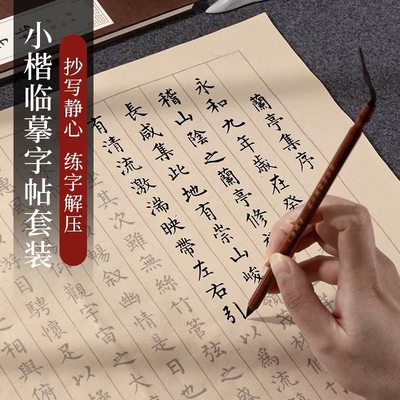 小楷临摹字帖套装
抄写静心 练字解压
蘭亭集序
永和九年歲在癸
稽山陰之蘭亭修
長咸集此地有崇山峻
有清流激湍映帶左右引
以為
坐其次雖無絲竹管弦之
暢敘幽情是日
之大
騁懷足以
相與